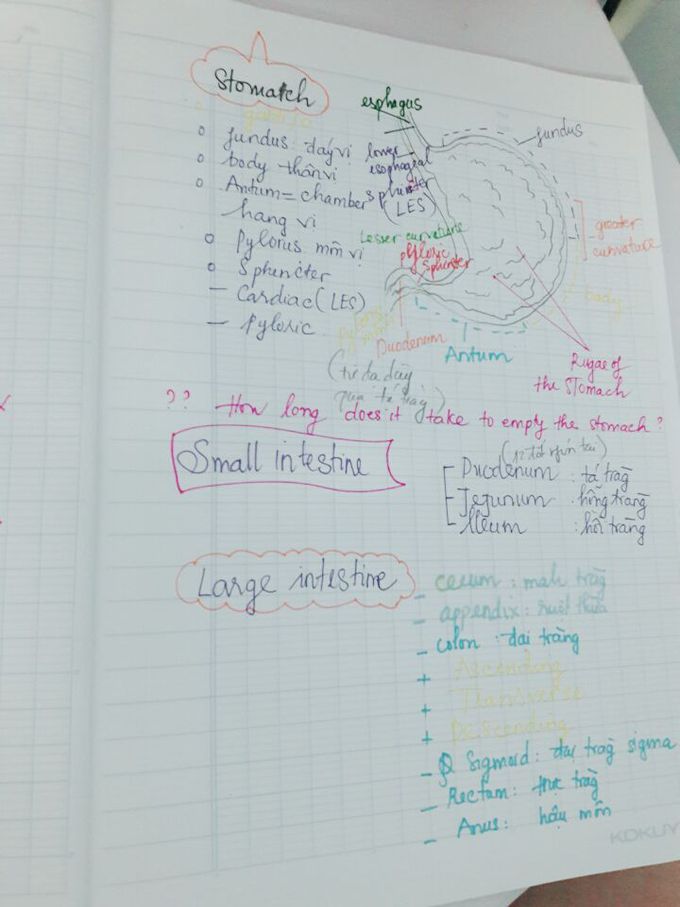 Stomatch
fundus: đáy vị
body thân vị
Antum = chamber
hang vị
Pylorus môn vị
Sphincter
– Cardiac (LES)
– Pyloric
esophagus
lower
esophageal
sphinter
(LES)
Lesser curvature
Pyloric
Sphincter
fundus
greater
curvature
body
Duodenum
Antum
Rugae of
the STomach
(từ dạ dày
qua tá tràng)
?? How long does it take to empty the stomach?
Small intestine
Duodenum : tá tràg
Jejunum : hỗng tràng
Ileum : hồi tràng
Large intestine
– cecum : manh tràg
– appendix : ruột thừa
– colon : đại tràng
+ Ascending
+ Transverse
+ Descending
– Sigmoid : đại tràg sigma
– Rectum : trực tràg
– Anus : hậu môn
KOKUY